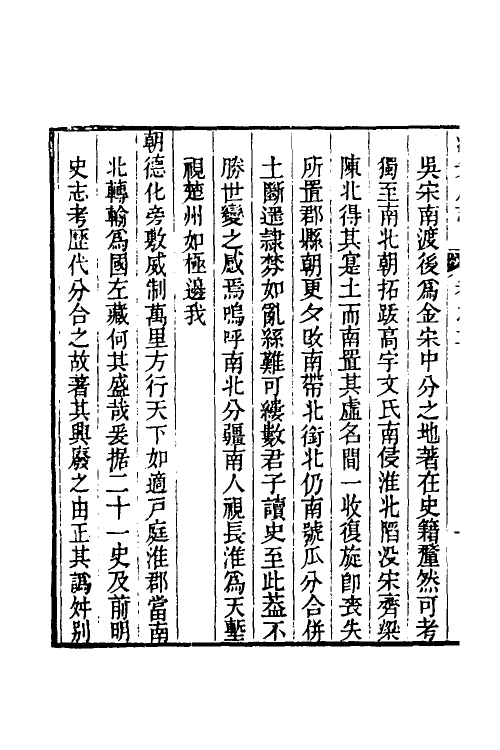 吳宋南渡後為金宋中分之地著在史籍釐然可考
獨至南北朝拓跋高宇文氏南侵淮北陷没宋齊梁
陳北得其寔土而南置其虛名間一收復旋卽喪失
所置郡縣朝更夕改南帶北銜北仍南號瓜分合併
土斷遥隷棼如亂絲難可縷數君子讀史至此葢不
勝世變之感焉嗚呼南北分疆南人視長淮為天塹
視楚州如極邊我
朝德化旁敷威制萬里方行天下如適戸庭淮郡當南
北轉輸為國左藏何其盛哉爰据二十一史及前明
史志考歷代分合之故著其興廢之由正其譌舛别